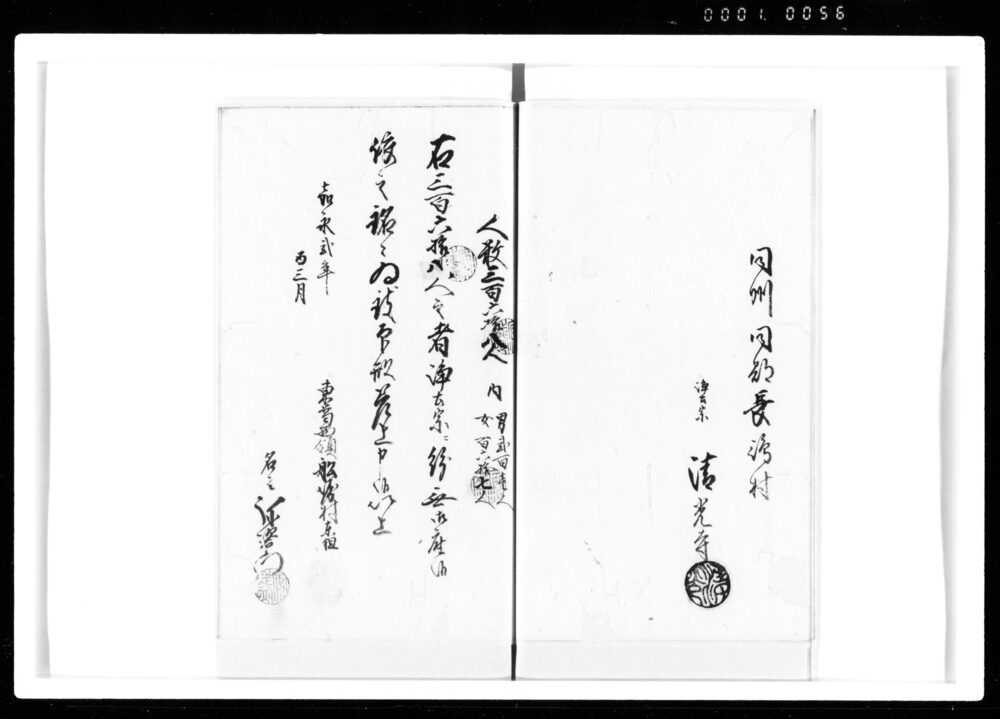 0001. 0056
同州同郡長嶋村
浄土宗
清光寺
人数三百六拾八人
内
男弐百壱人
女百六拾七人
右三百六拾八人之者浄土宗ニ紛無御座候
依之銘々為致印形差上申候以上
嘉永弐年
酉三月
東葛西領船堀村東組
名主